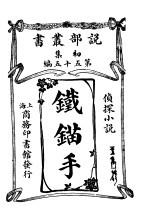 說部叢書
初集
第五十五編
偵探小說
鐵錨手
上海商務印書館發行